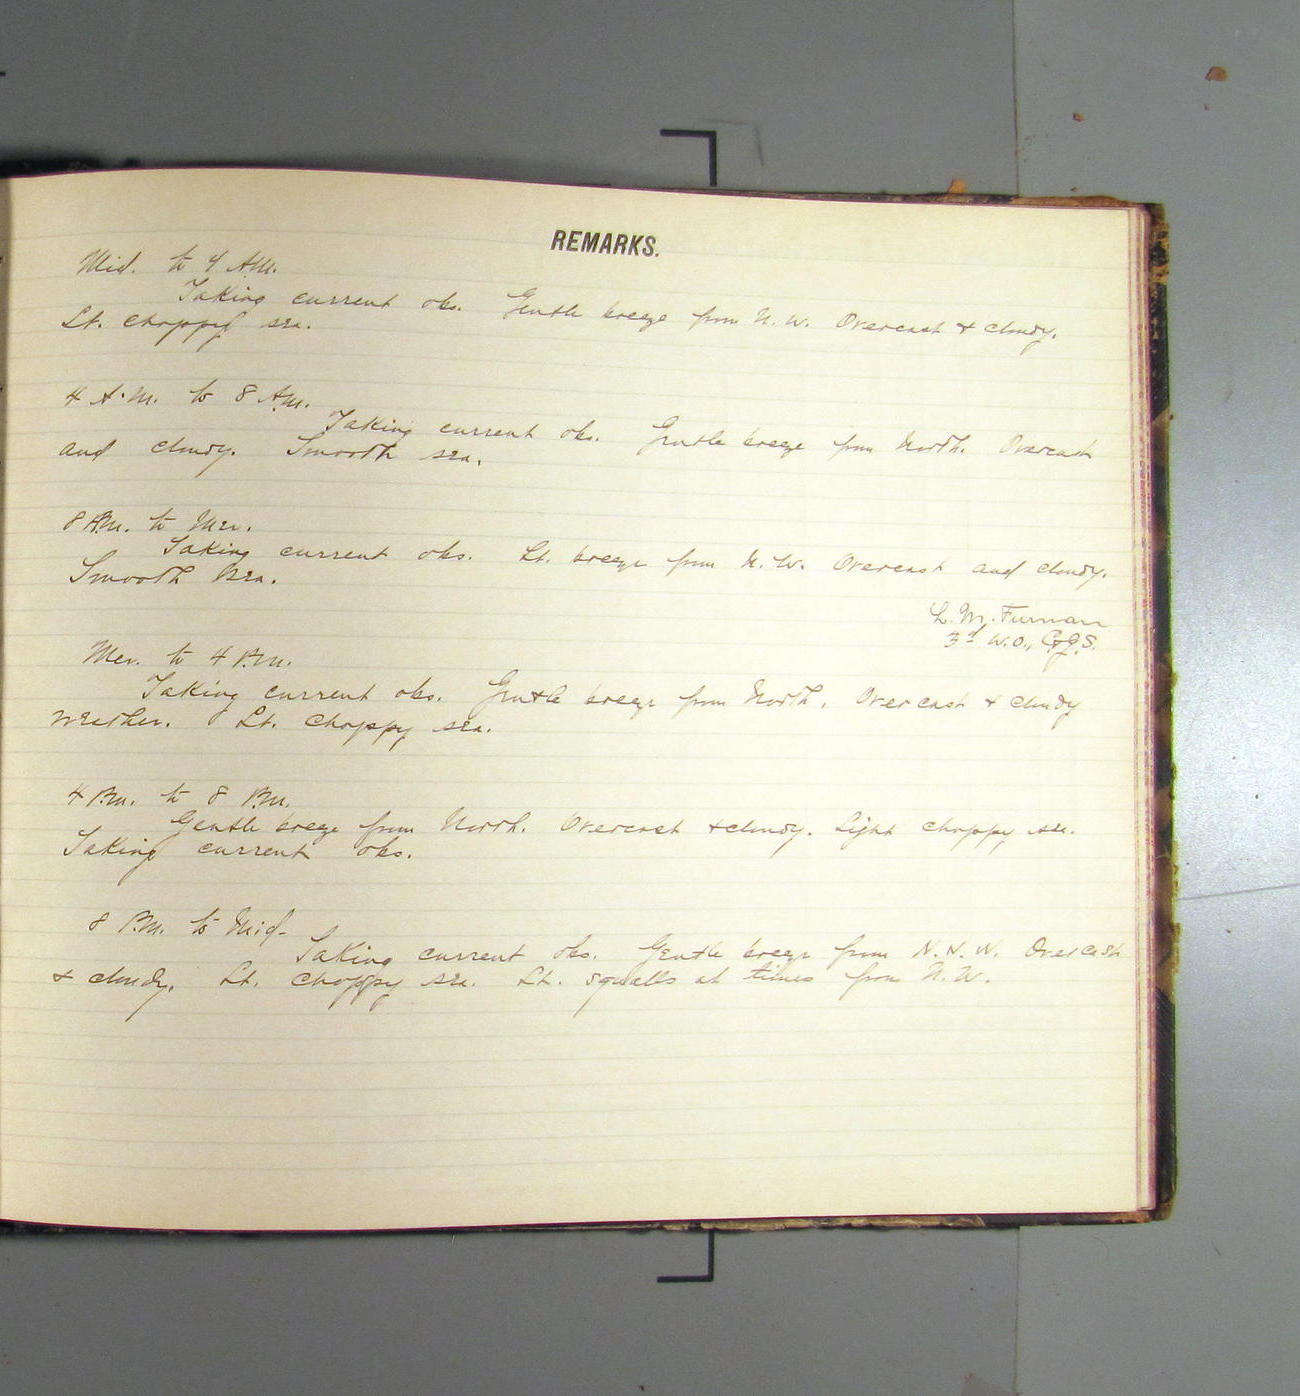 REMARKS.
Mid. to 4 A.M.
Taking current obs. Gentle breeze from N.W. Overcast & cloudy.
Lt. choppy sea.
4 A.M. to 8 A.M.
Taking current obs. Gentle breeze from North. Overcast
and cloudy. Smooth sea.
8 A.M. to Mer.
Taking current obs. Lt. breeze from N.W. Overcast and cloudy.
Smooth sea.
L. M. Furman
3d W.O., C.&G.S.
Mer. to 4 P.M.
Taking current obs. Gentle breeze from North. Overcast & cloudy
weather. Lt. choppy sea.
4 P.M. to 8 P.M.
Gentle breeze from North. Overcast & cloudy. Light choppy sea.
Taking current obs.
8 P.M. to Mid-
Taking current obs. Gentle breeze from N.N.W. Overcast
& cloudy. Lt. choppy sea. Lt. squalls at times from N.W.